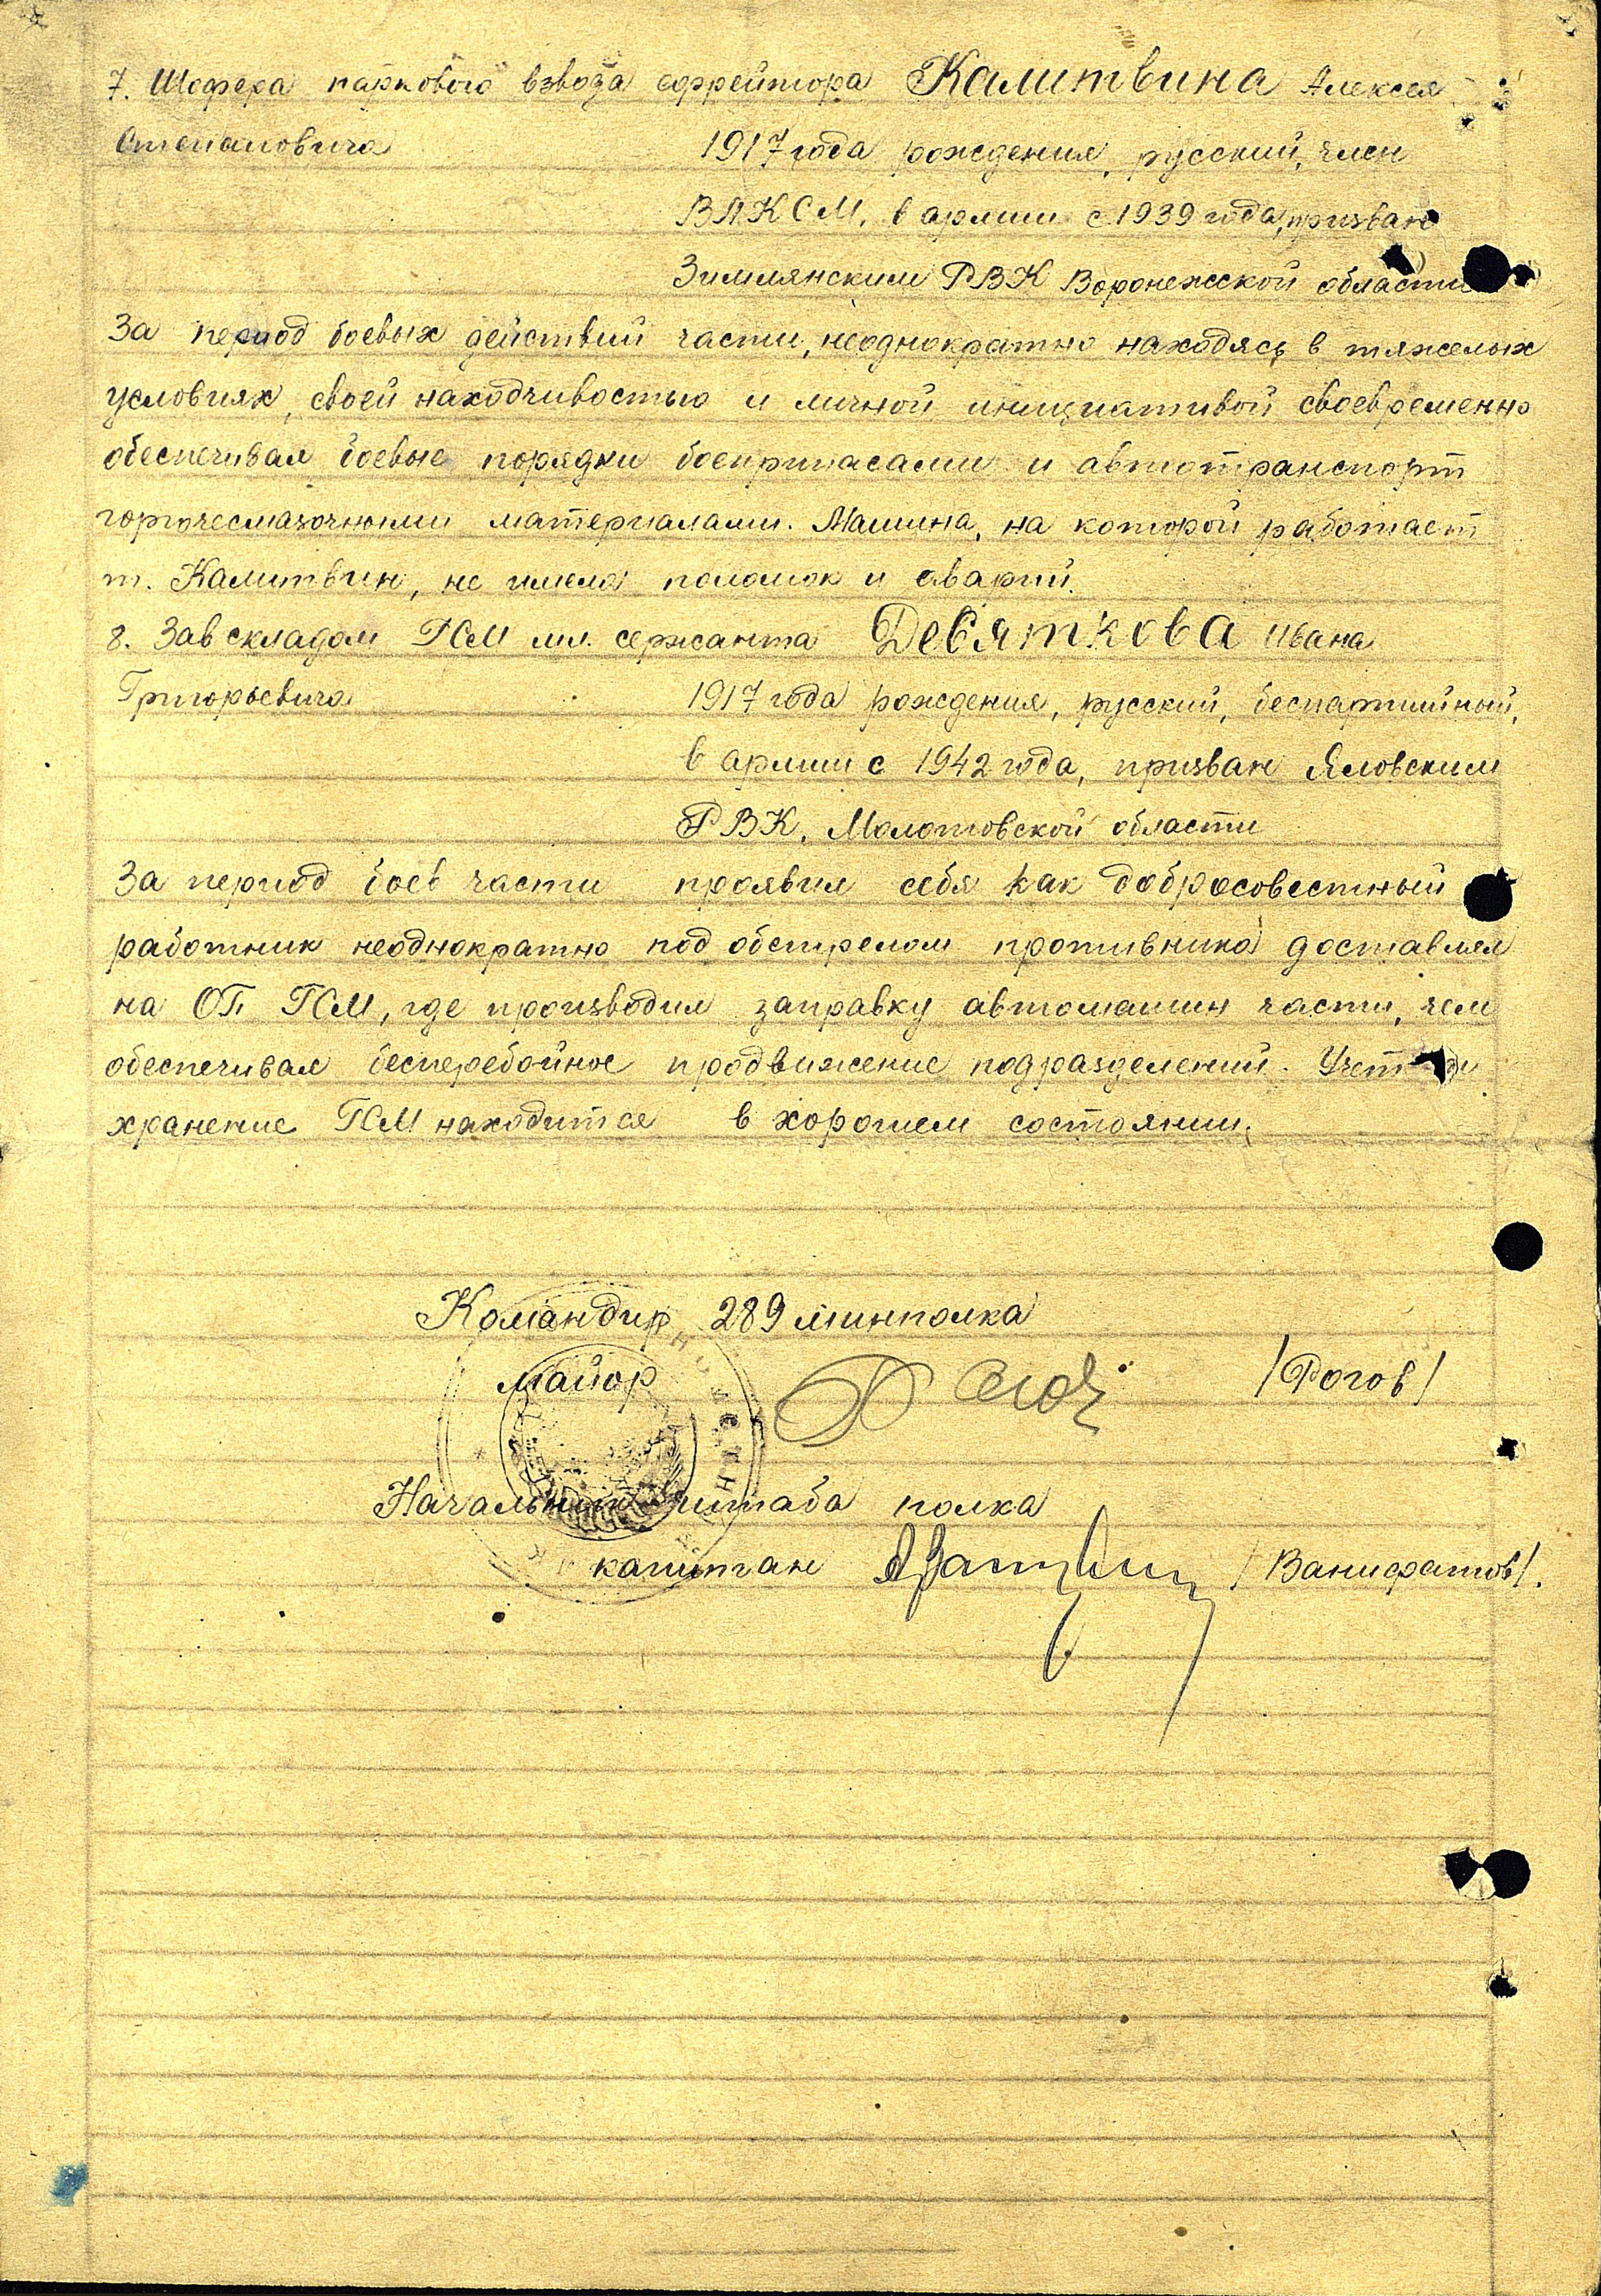 7. Шофера паркового взвода ефрейтора Калитвина Алексея
Степановича 1917 года рождения, русский, член
ВЛКСМ, в армии с 1939 года, призван
Зимлянским РВК Воронежской области
За период боевых действий части, неоднократно находясь в тяжелых
условиях, своей находчивостью и личной инициативой своевременно
обеспечивал боевые порядки боеприпасами и автотранспорт
горючесмазочными материалами. Машина, на которой работает
т. Калитвин, не имела поломок и аварий.
8. Зав складом ГСМ мл. сержанта Девяткова Ивана
Григорьевича 1917 года рождения, русский, беспартийный,
в армии с 1942 года, призван Яловским
РВК, Молотовской области
За период боев части проявил себя как добросовестный
работник неоднократно под обстрелом противника доставлял
на ОП ГСМ, где производил заправку автомашин части, чем
обеспечивал бесперебойное продвижение подразделений. Учет и
хранение ГСМ находится в хорошем состоянии.
Командир 289 минполка
майор /Рогов/
Начальник штаба полка
капитан /Ванифатов/.